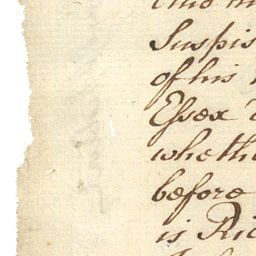 Suspis
of his
Essex
wheth
before
is Ric